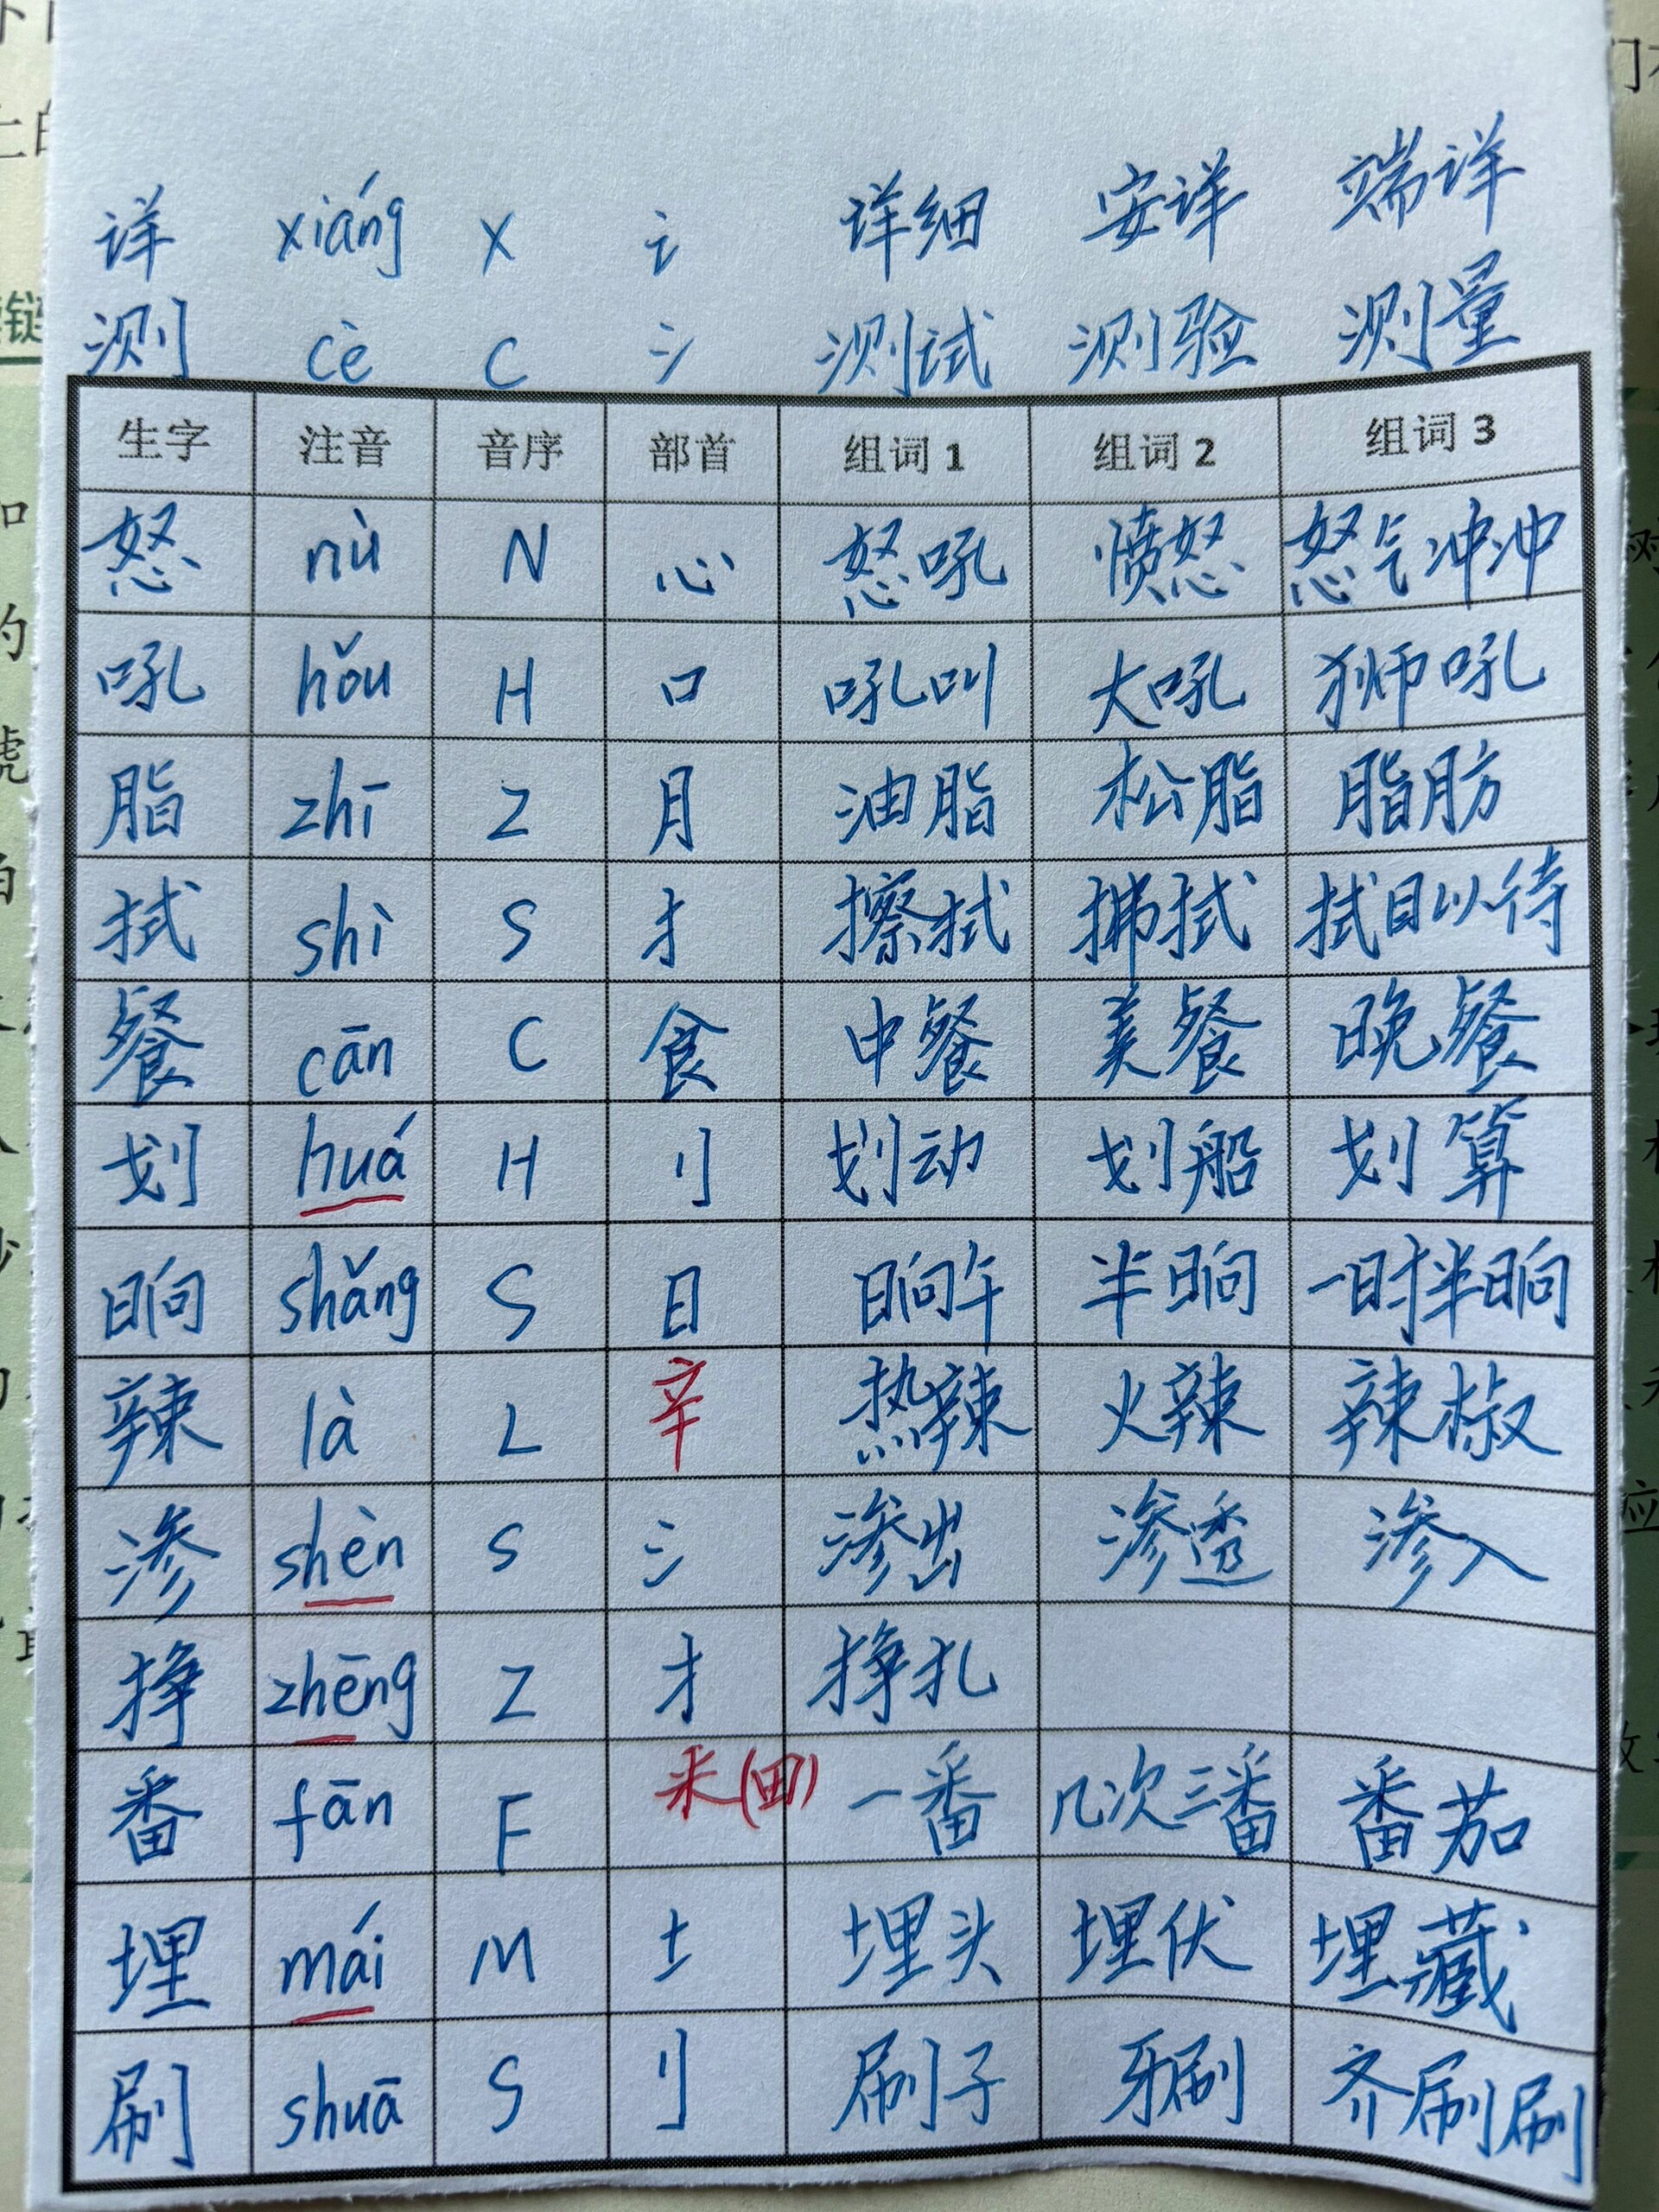 详 xiáng X 讠 详细 安详 端详
测 cè C 氵 测试 测验 测量
生字 注音 音序 部首 组词 1 组词 2 组词 3
怒 nù N 心 怒吼 愤怒 怒气冲冲
吼 hǒu H 口 吼叫 大吼 狮吼
脂 zhī Z 月 油脂 松脂 脂肪
拭 shì S 扌 擦拭 拂拭 拭目以待
餐 cān C 食 中餐 美餐 晚餐
划 huá H 刂 划动 划船 划算
晌 shǎng S 日 晌午 半晌 一时半晌
辣 là L 辛 热辣 火辣 辣椒
渗 shèn S 氵 渗出 渗透 渗入
挣 zhēng Z 扌 挣扎
番 fān F 釆(田) 一番 几次三番 番茄
埋 mái M 土 埋头 埋伏 埋藏
刷 shuā S 刂 刷子 牙刷 齐刷刷